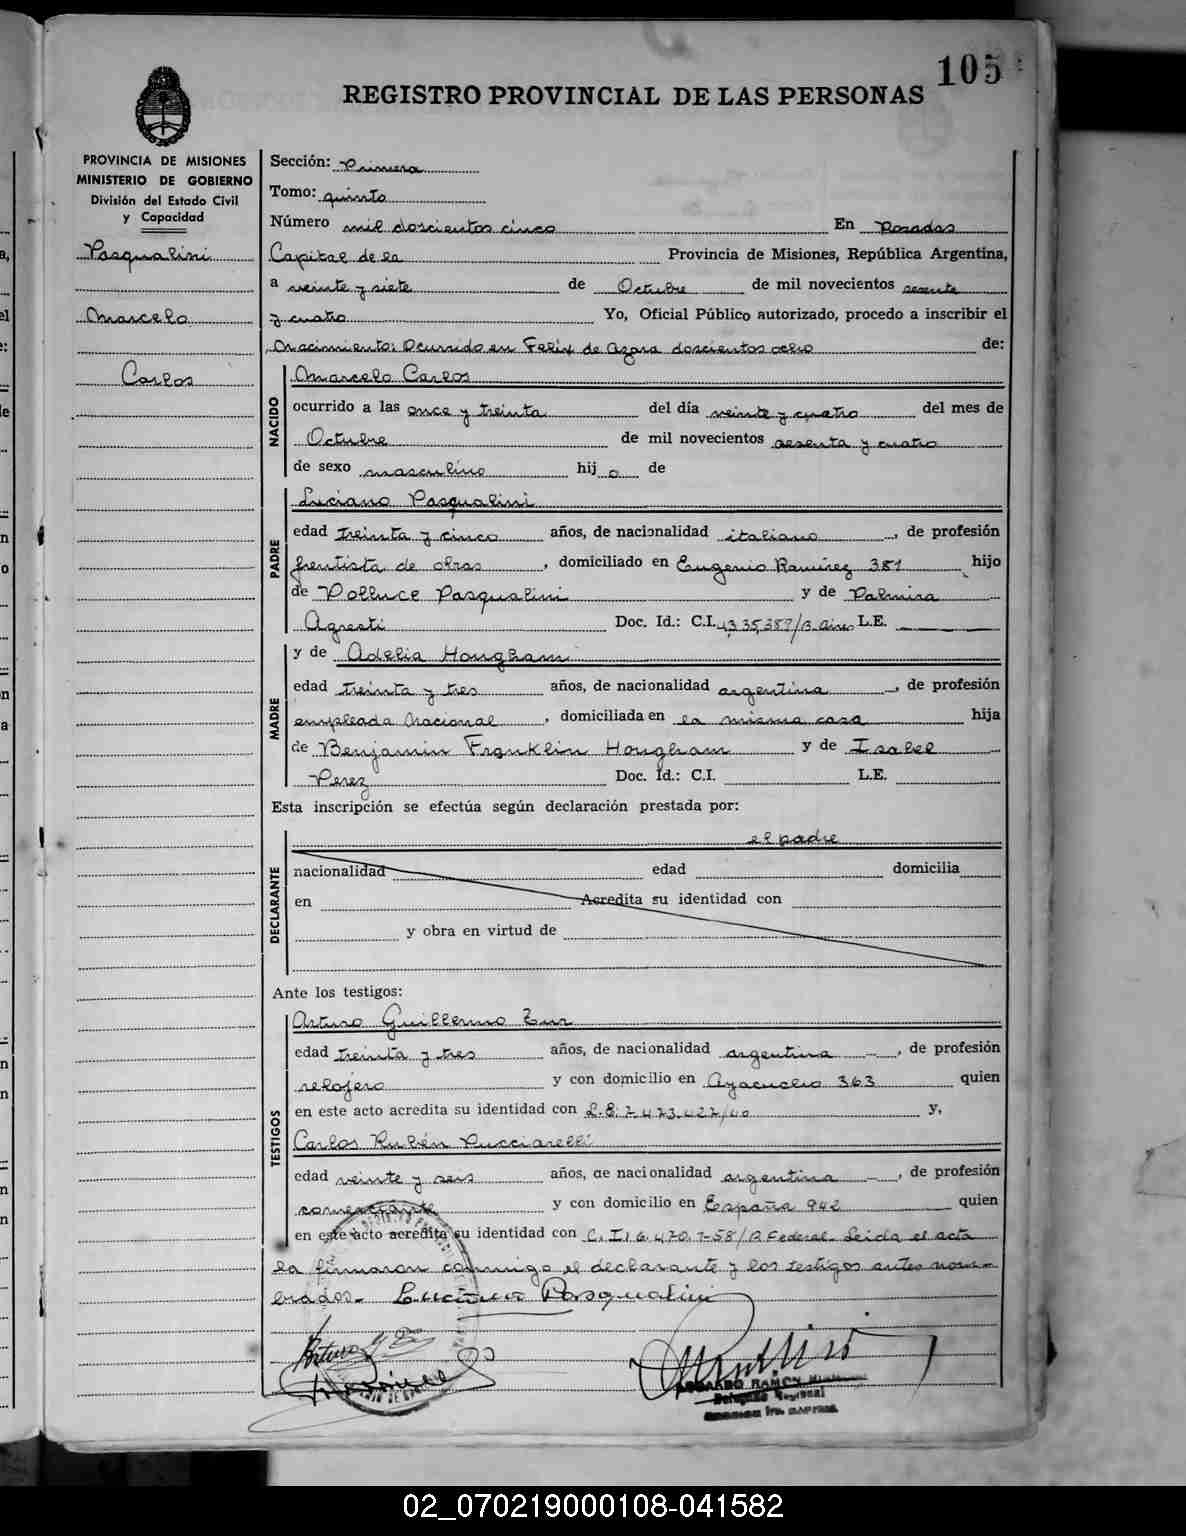 105
REGISTRO PROVINCIAL DE LAS PERSONAS
PROVINCIA DE MISIONES
MINISTERIO DE GOBIERNO
División del Estado Civil
y Capacidad
Pasqualini
Marcelo
Carlos
Sección: Primera
Tomo: quinto
Número mil doscientos cinco En Posadas
Capital de la Provincia de Misiones, República Argentina,
a veinte y siete de Octubre de mil novecientos sesenta
y cuatro Yo, Oficial Público autorizado, procedo a inscribir el
Nacimiento: Ocurrido en Felix de Azara doscientos ocho de:
NACIDO
Marcelo Carlos
ocurrido a las once y treinta del día veinte y cuatro del mes de
Octubre de mil novecientos sesenta y cuatro
de sexo masculino hij o de
PADRE
Luciano Pasqualini
edad treinta y cinco años, de nacionalidad italiano, de profesión
frentista de obras, domiciliado en Eugenio Ramirez 381 hijo
de Polluce Pasqualini y de Palmira
Agresti Doc. Id.: C.I. 4.335.387/B. Aires L.E.
MADRE
y de Adelia Hougham
edad treinta y tres años, de nacionalidad argentina, de profesión
empleada Nacional, domiciliada en la misma casa hija
de Benjamin Franklin Hougham y de Isabel
Perez Doc. Id.: C.I. L.E.
Esta inscripción se efectúa según declaración prestada por:
DECLARANTE
el padre
nacionalidad edad domicilia
en Acredita su identidad con
y obra en virtud de
Ante los testigos:
TESTIGOS
Arturo Guillermo Zur
edad treinta y tres años, de nacionalidad argentina, de profesión
relojero y con domicilio en Ayacucho 363 quien
en este acto acredita su identidad con L.E. 7.473.427/40 y,
Carlos Rubén Pucciarelli
edad veinte y seis años, de nacionalidad argentina, de profesión
comerciante y con domicilio en España 942 quien
en este acto acredita su identidad con C.I. 6.470.758/P. Federal. Leida el acta
la firmaron conmigo el declarante y los testigos antes nom-
brados.- Luciano Pasqualini
Arturo G. Zur
RAMON
Delegado Regional
02_070219000108-041582